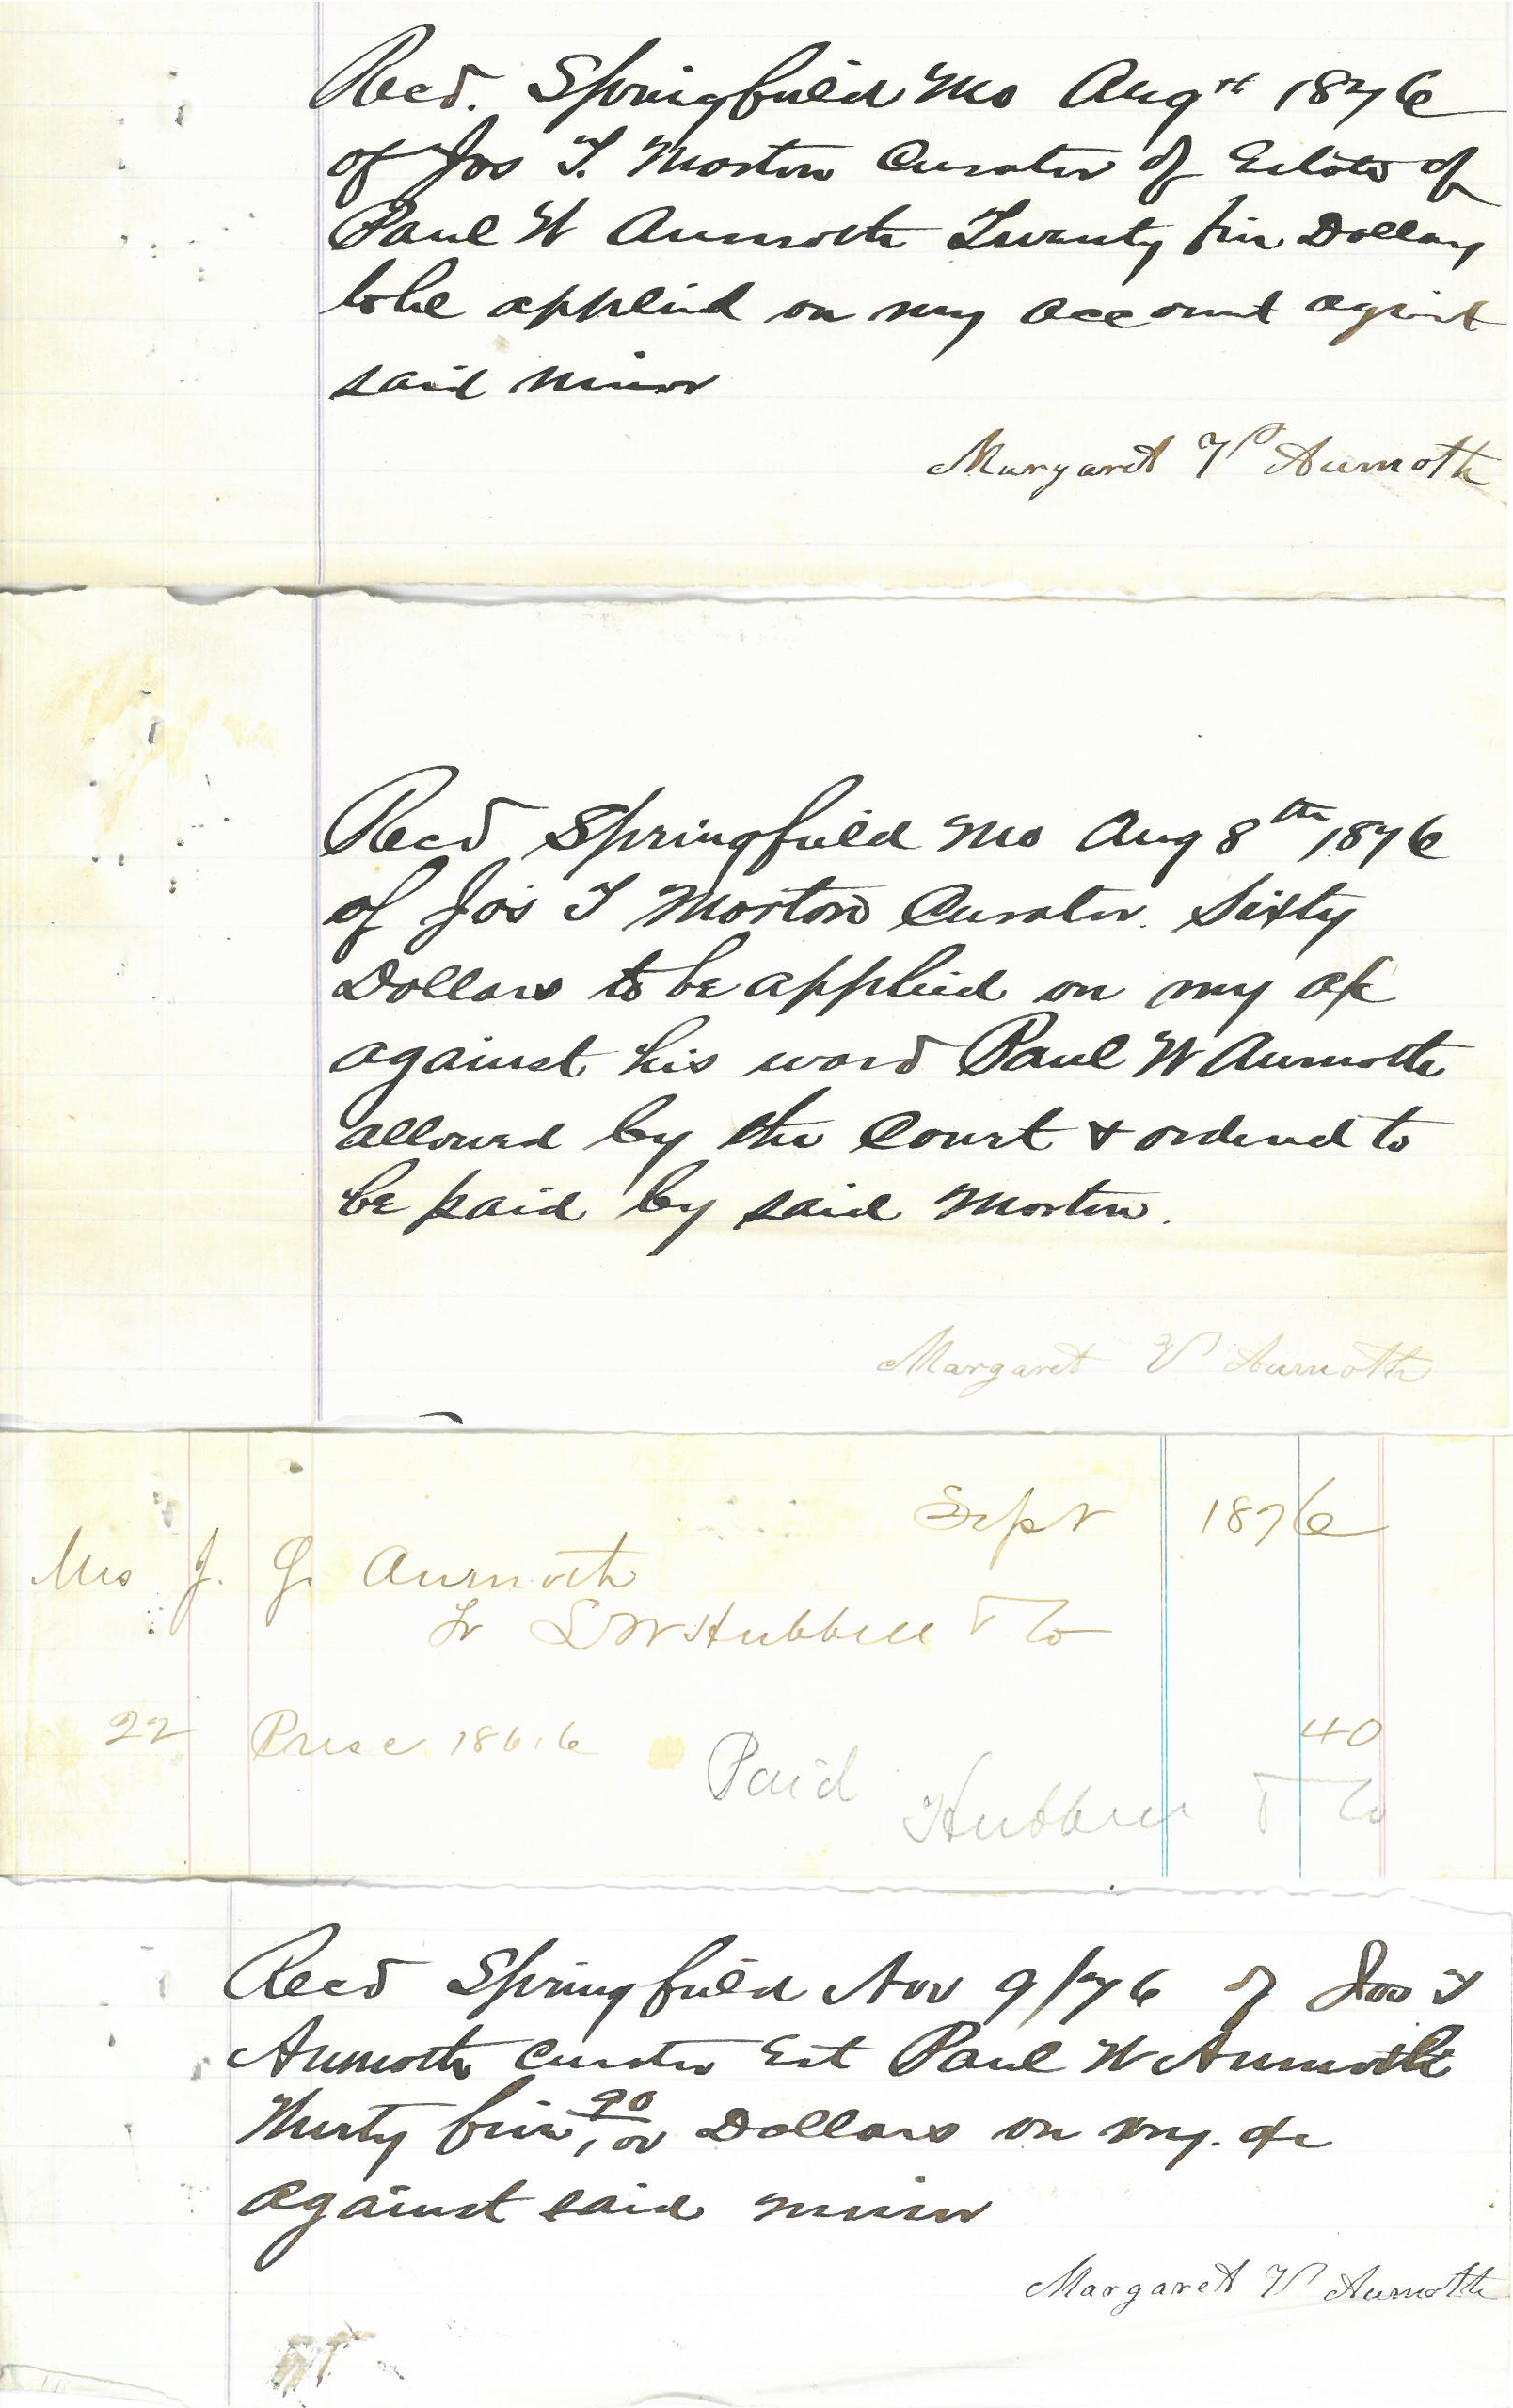 Recd. Springfield Mo Aug 1876
of Jos T. Morton Curator of Estate of
Paul W Aumoth Twenty five Dollars
to be applied on my account against
said minor
Margaret V Aumoth
Recd Springfield Mo Aug 8th 1876
of Jos T Morton Curator. Sixty
Dollars to be applied on my a/c
against his ward Paul W Aumoth
allowed by the Court & ordered to
be paid by said Morton.
Margaret V Aumoth
Sept 1876
Mrs J. G. Aumoth
To Hubbell & Co
22 40
Paid Hubbell & Co
Recd Springfield Nov 9/76 of Jos T
Aumoth Curator Est Paul W Aumoth
Thirty five 90/100 Dollars on my a/c
against said minor
Margaret V Aumoth